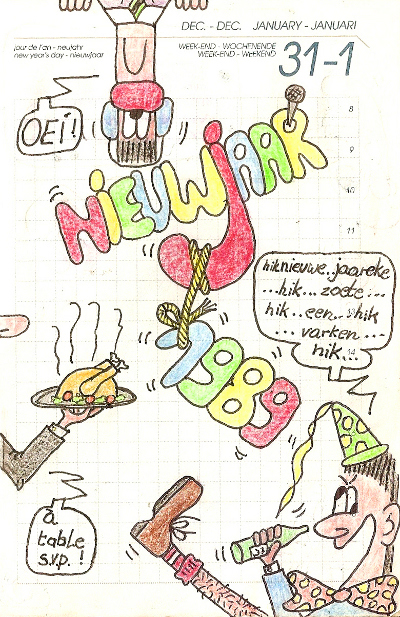 DEC. - DEC. JANUARY - JANUARI
jour de l'an - neujahr
new year's day - nieuwjaar
WEEK-END - WOCHENENDE
WEEK-END - WEEKEND
31-1
OEI!
8
9
10
11
NIEUWJAAR
1989
hik nieuwe..jaareke
...hik...zoete...
hik..een...hik
...varken...
hik...
à
table
s.v.p.!